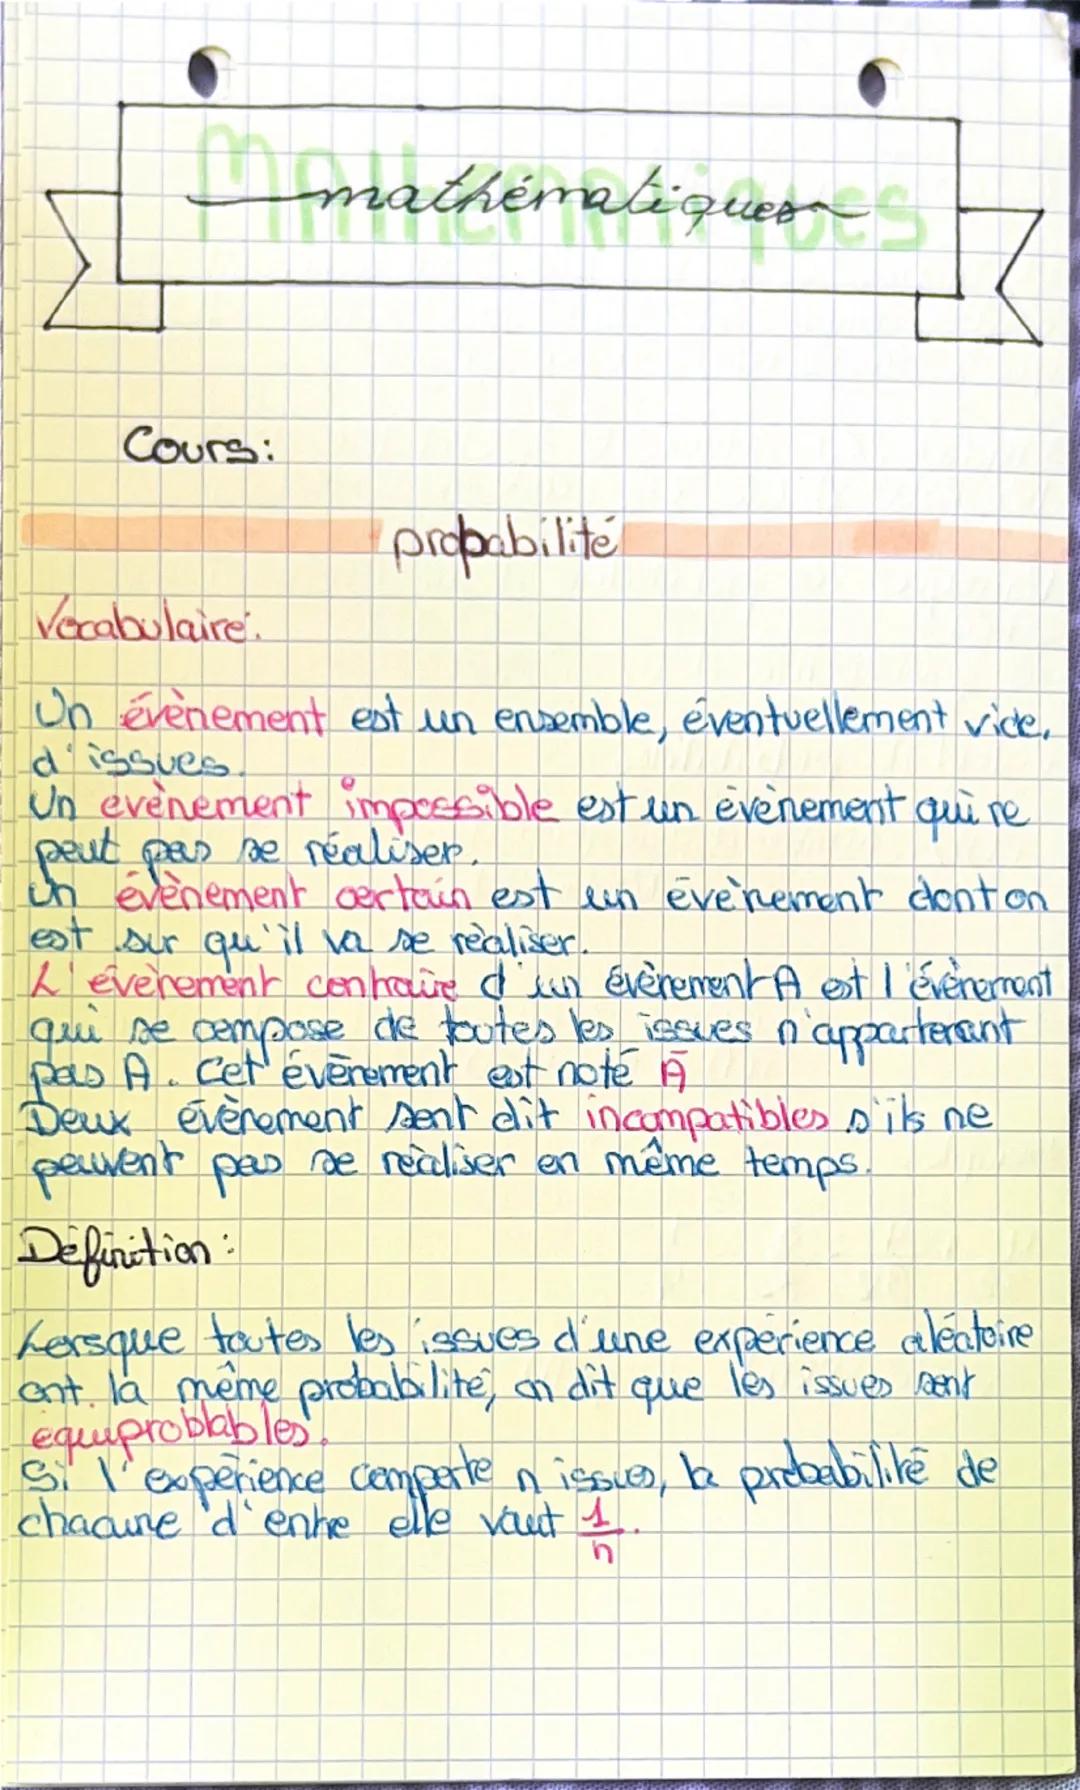 Mathematiques
mathématiques
Cours:
probabilité
Vocabulaire:
Un évènement est un ensemble, éventuellement vide,
d'issues.
Un évènement impossible est un évènement qui ne
peut pas se réaliser.
Un évènement certain est un évènement dont on
est sur qu'il va se réaliser.
L'évènement contraire d'un évènement A est l'évènement
qui se compose de toutes les issues n'appartenant
pas A. Cet évènement est noté Ā
Deux évènement sont dit incompatibles s'ils ne
peuvent pas se réaliser en même temps.
Définition :
Lorsque toutes les issues d'une expérience aléatoire
ont la même probabilité, on dit que les issues sont
équiproblables.
Si l'expérience comporte n issues, la probabilité de
chacune d'entre elle vaut 1/n.